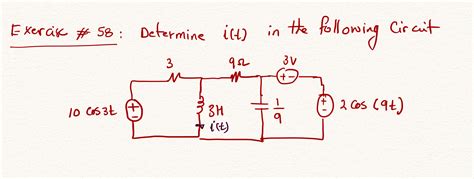 Exercise # 58: Determine i(t) in the following Circuit
3 9Ω 3V
+ -
10 cos3t + - 3H 1/9 + - 2 cos (9t)
i(t)